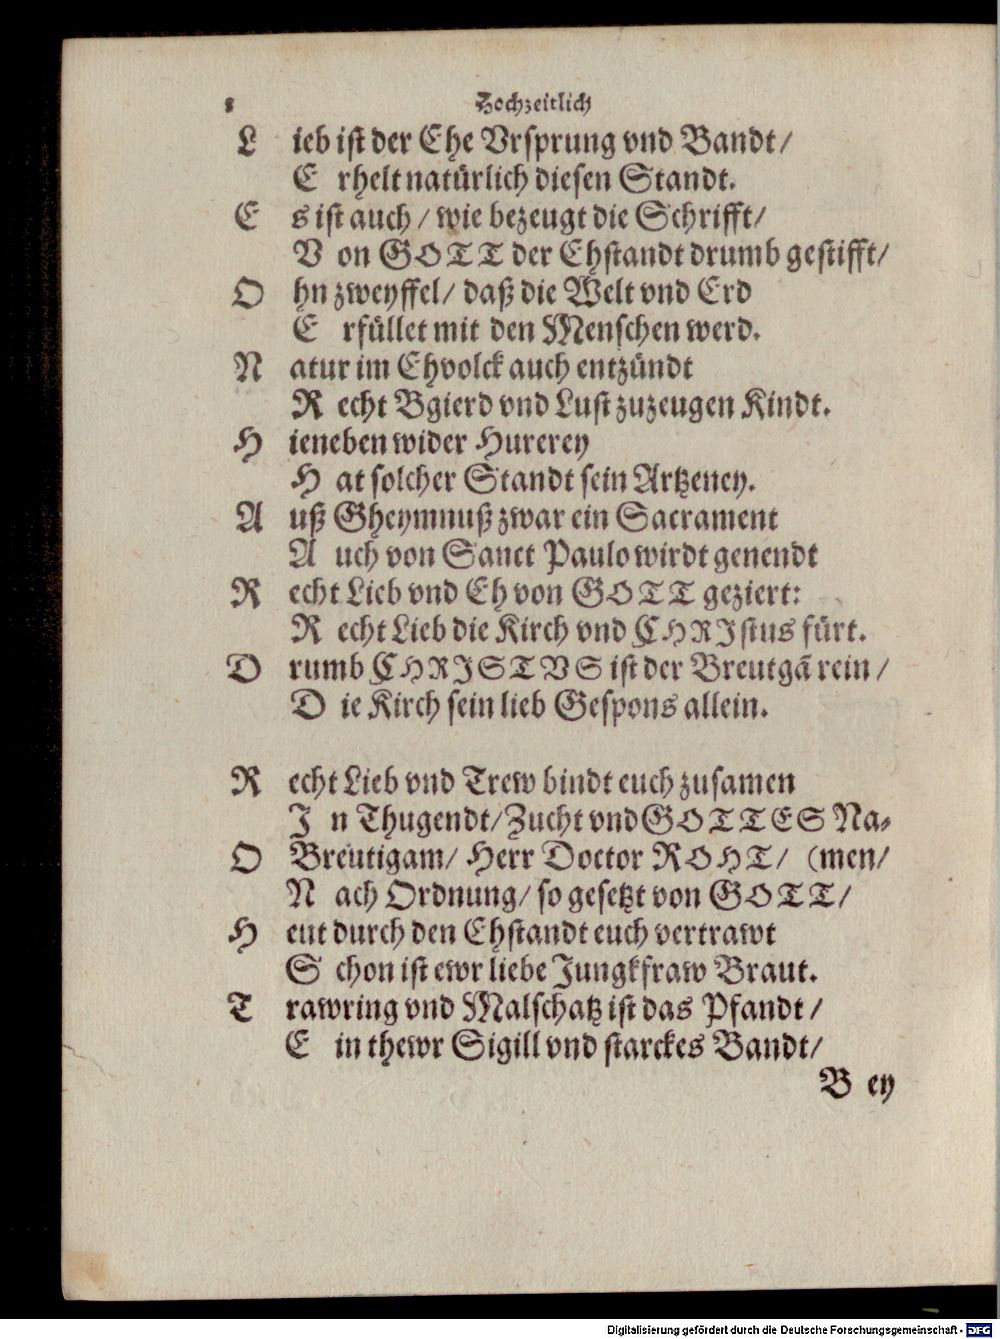 8 Hochzeitlich
L ieb ist der Ehe Vrsprung vnd Bandt/
E rhelt natürlich diesen Standt.
E s ist auch/ wie bezeugt die Schrifft/
V on GOTT der Ehstandt drumb gestifft/
O hn zweyffel/ daß die Welt vnd Erd
E rfüllet mit den Menschen werd.
N atur im Ehvolck auch entzündt
R echt Bgierd vnd Lust zuzeugen Kindt.
H ieneben wider Hurerey
H at solcher Standt sein Artzeney.
A uß Gheymnuß zwar ein Sacrament
A uch von Sanct Paulo wirdt genendt
R echt Lieb vnd Eh von GOTT geziert:
R echt Lieb die Kirch vnd CHRIstus fürt.
D rumb CHRISTVS ist der Breutgã rein/
D ie Kirch sein lieb Gespons allein.
R echt Lieb vnd Trew bindt euch zusamen
I n Thugendt/ Zucht vnd GOTTES Na-
O Breutigam/ Herr Doctor ROHT/ (men/
N ach Ordnung/ so gesetzt von GOTT/
H eut durch den Ehstandt euch vertrawt
S chon ist ewr liebe Jungkfraw Braut.
T rawring vnd Malschatz ist das Pfandt/
E in thewr Sigill vnd starckes Bandt/
B ey
Digitalisierung gefördert durch die Deutsche Forschungsgemeinschaft - DFG